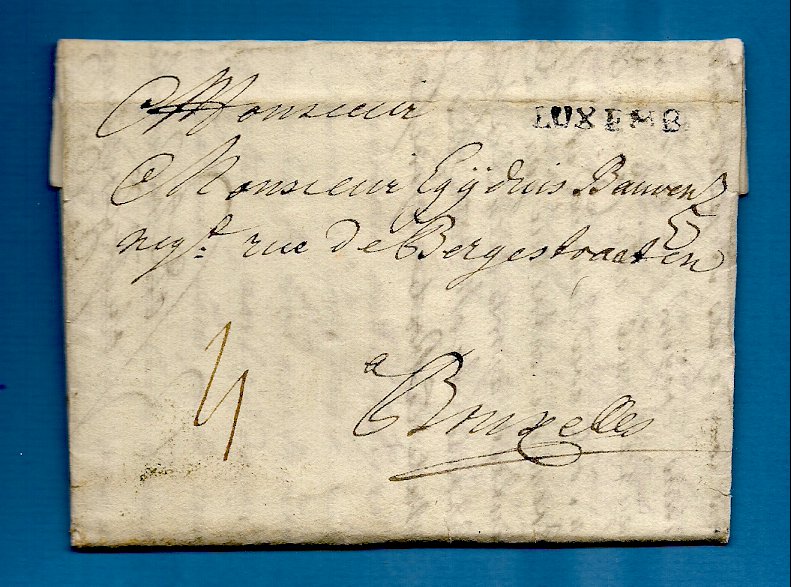 Monsieur
LUXEMB
Monsieur Egÿduis Bauwens
negt. rue de Bergestraaten
4
a Bruxelles